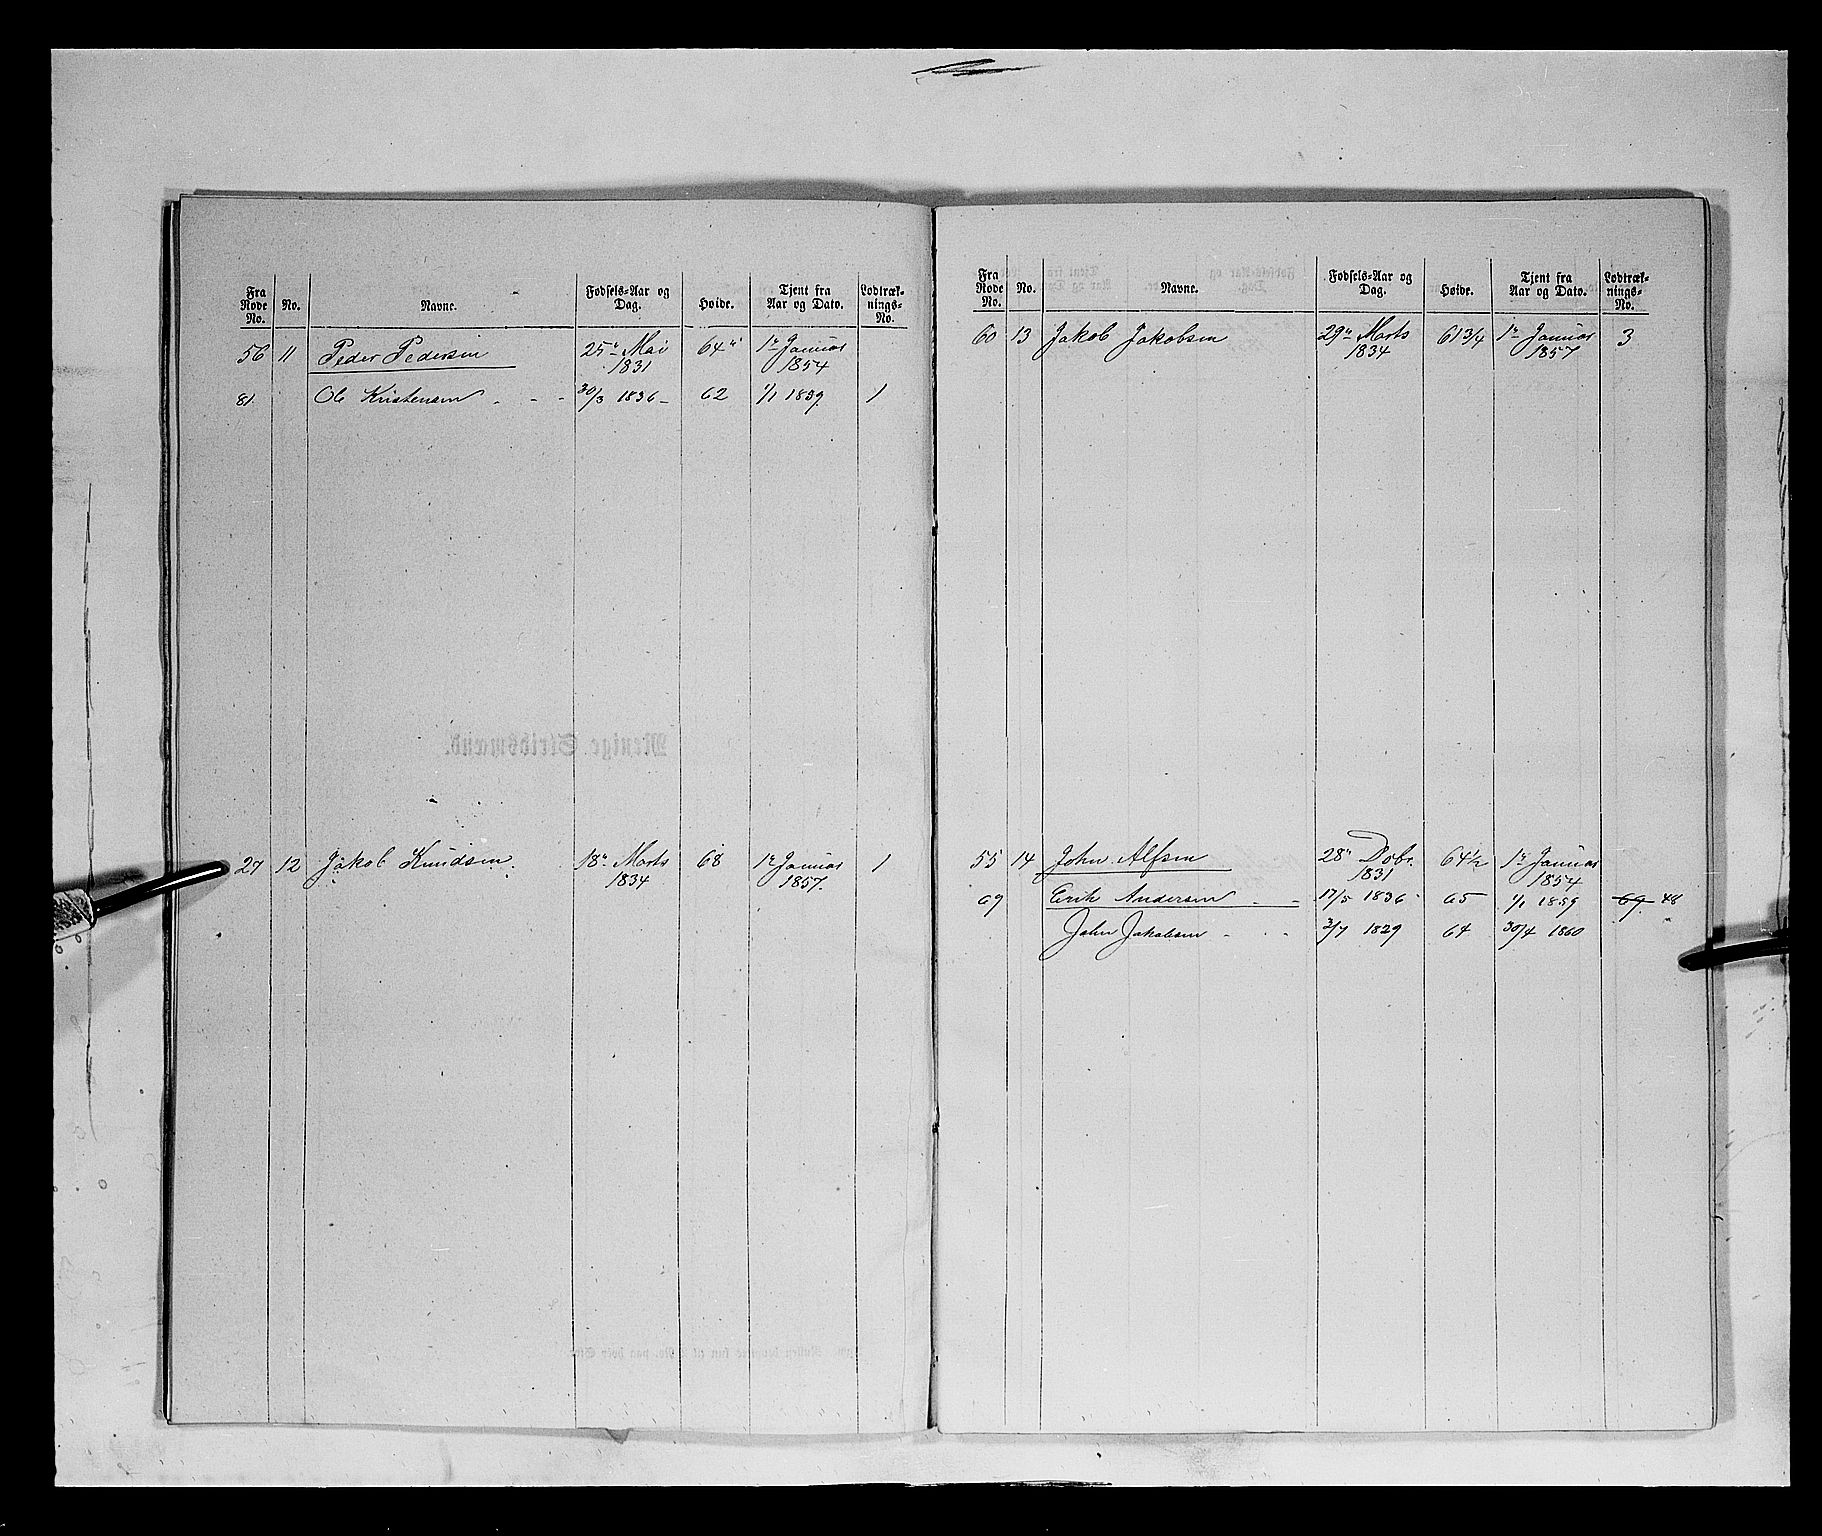 Fra Rode No. No. Navne. Fødsels-Aar og Dag. Høide. Tjent fra Aar og Dato. Lodtræk-nings-No.
56 11 Peder Pedersen 25de Mai 1831 64" 1ste Januar 1854
81. Ole Kristensen - - - 30/3 1836 - 62 1/1 1859 1
27 12 Jakob Knudsen. 18de Marts 1834 68 1ste Januar 1857. 1
Fra Rode No. No. Navne. Fødsels-Aar og Dag. Høide. Tjent fra Aar og Dato. Lodtræk-nings-No.
60 13 Jakob Jakobsen 29de Marts 1834 61 3/4 1ste Januar 1857 3
55 14 John Alfsen 28de Dobr. 1831 64 1/2 1ste Januar 1854
69 Erik Andersen - - 17/5 1836 65 1/1 1859 69. 48
John Jakobsen - - - 3/7 1829 64 30/4 1860